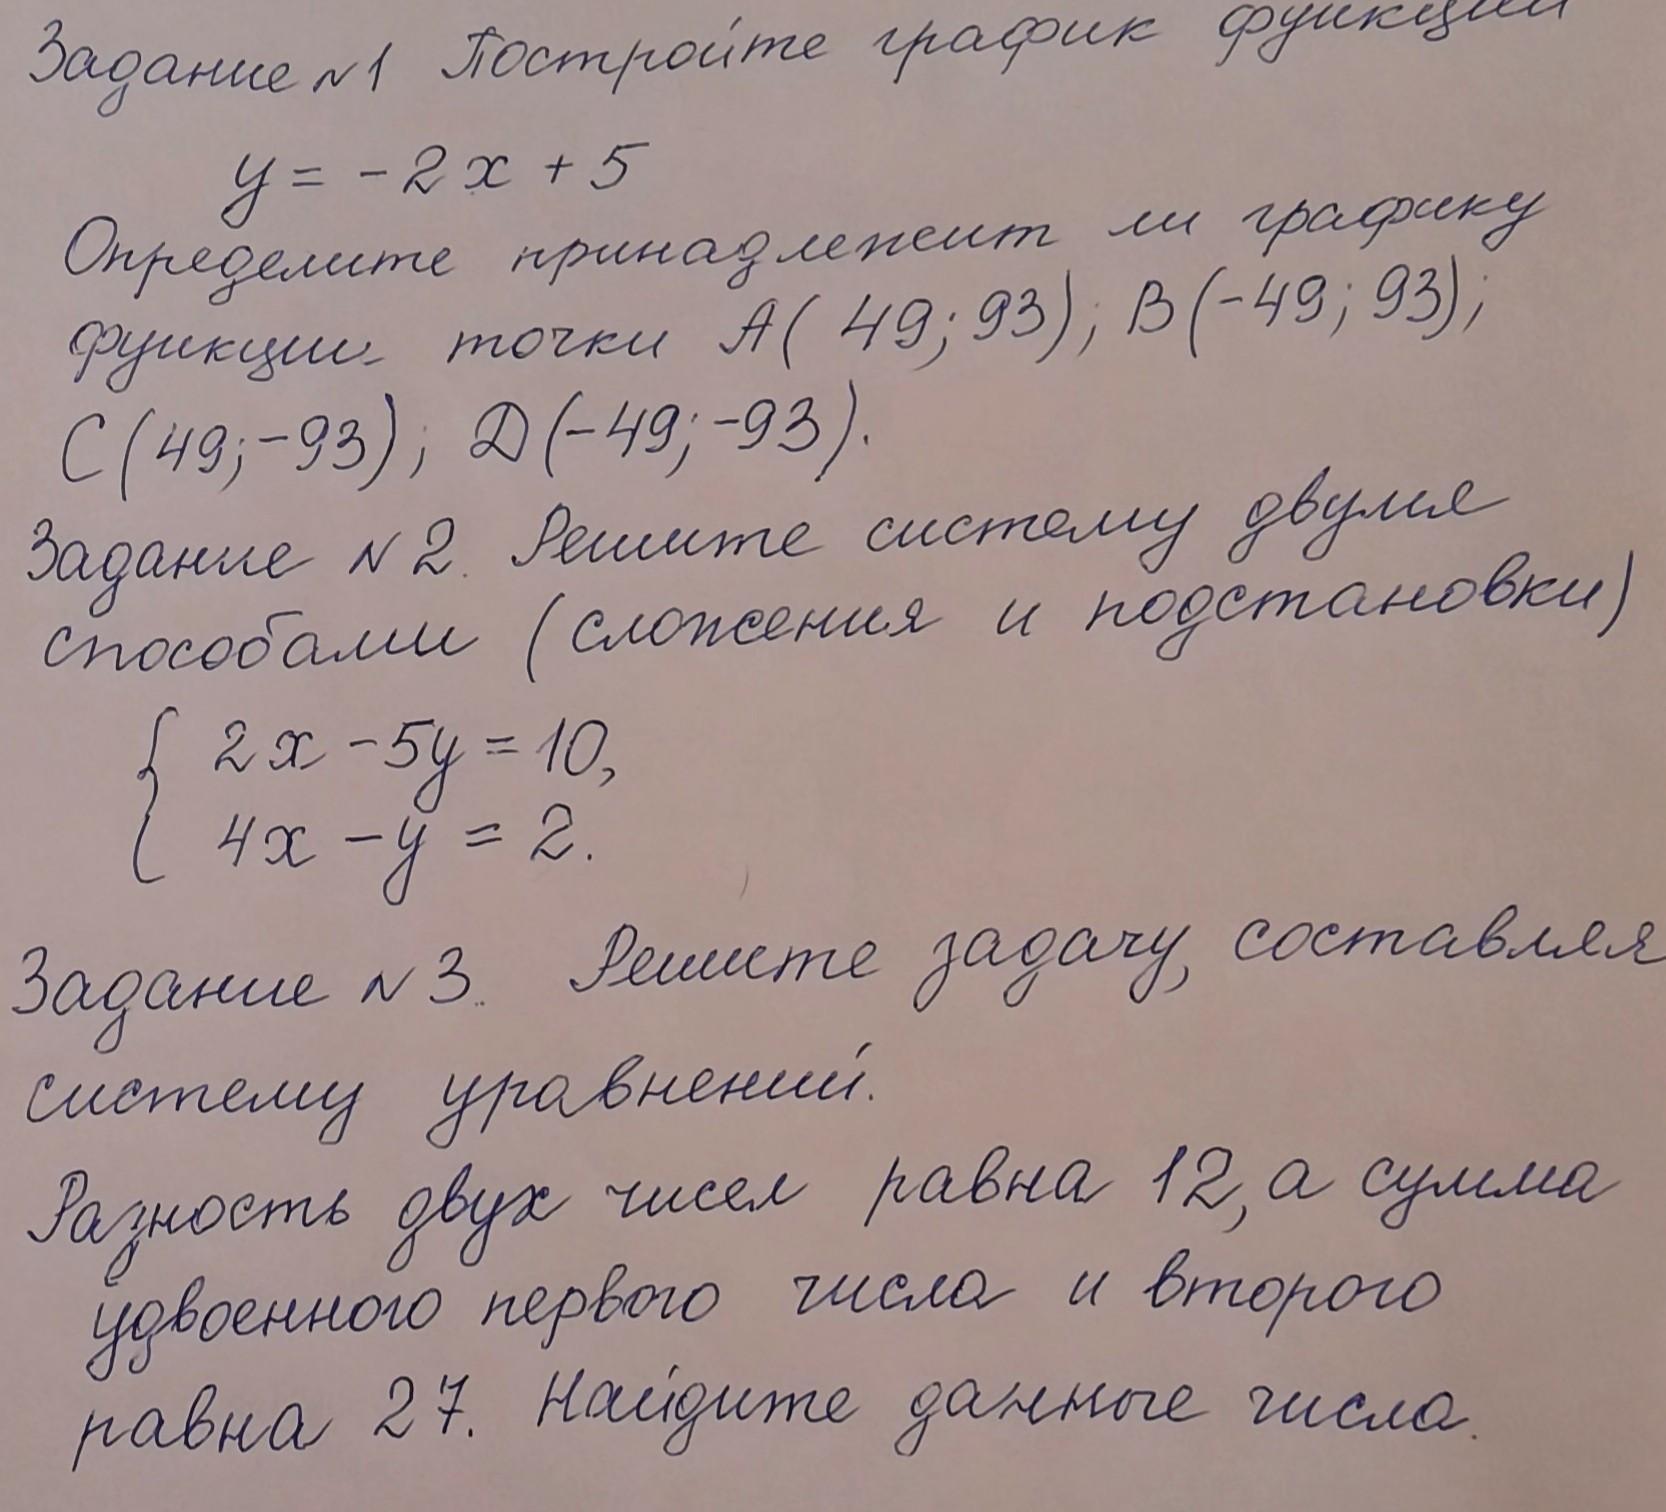 Задание №1 Постройте график функции
y = -2x + 5
Определите принадлежит ли графику
функции точки A( 49; 93); B(-49; 93);
C(49;-93); D(-49;-93).
Задание №2. Решите систему двумя
способами (сложения и подстановки)
{ 2x - 5y = 10,
4x - y = 2.
Задание №3. Решите задачу, составляя
систему уравнений.
Разность двух чисел равна 12, а сумма
удвоенного первого числа и второго
равна 27. Найдите данные числа.